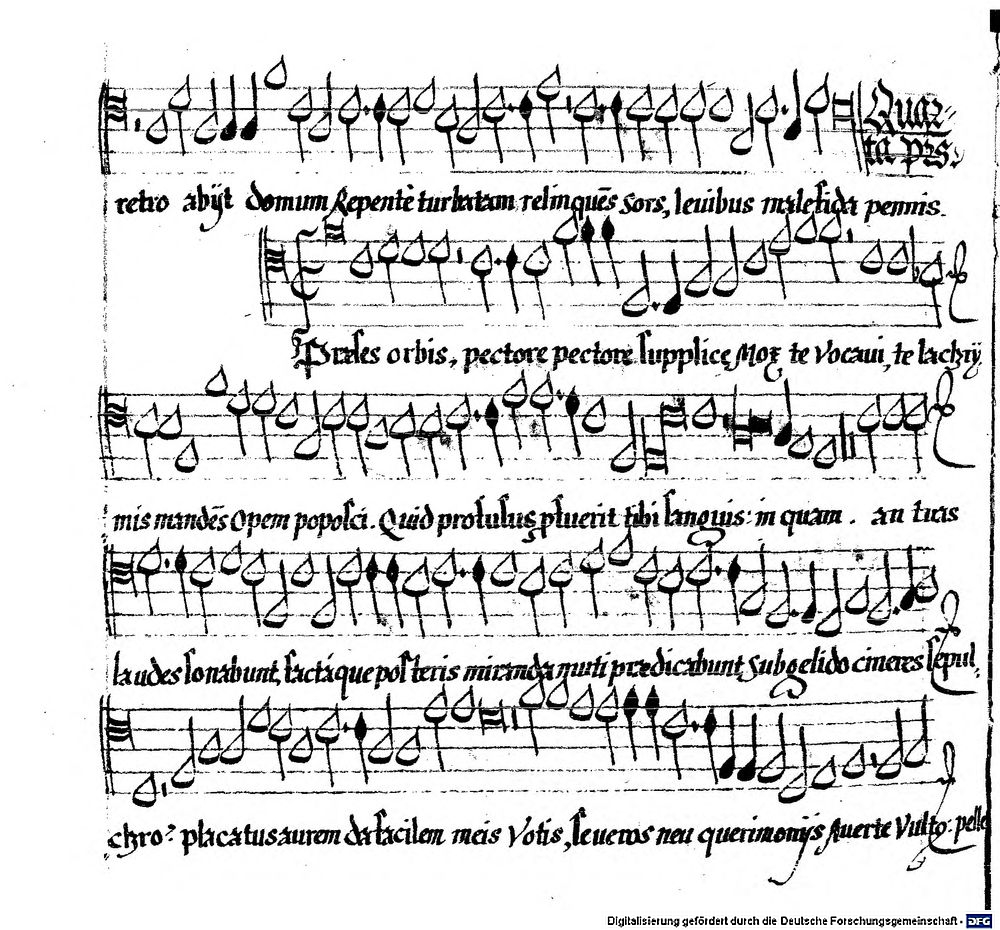 Quar-
ta prs.
retro abijt domum Repentè turbatam relinquēs sors, leuibus malefida pennis.
Præses orbis, pectore pectore supplice Mox te Vocaui, te lachrÿ
mis mandēs Opem poposci. Quid profusus pluerit tibi sanguis: in quam. an tuas
laudes sonabunt, factáque posteris miranda muti prædicabunt Sub gelido cineres sepul
chro? placatus aurem da facilem meis Votis, seueros neu querimonijs Auerte Vult9: pelle
Digitalisierung gefördert durch die Deutsche Forschungsgemeinschaft - DFG